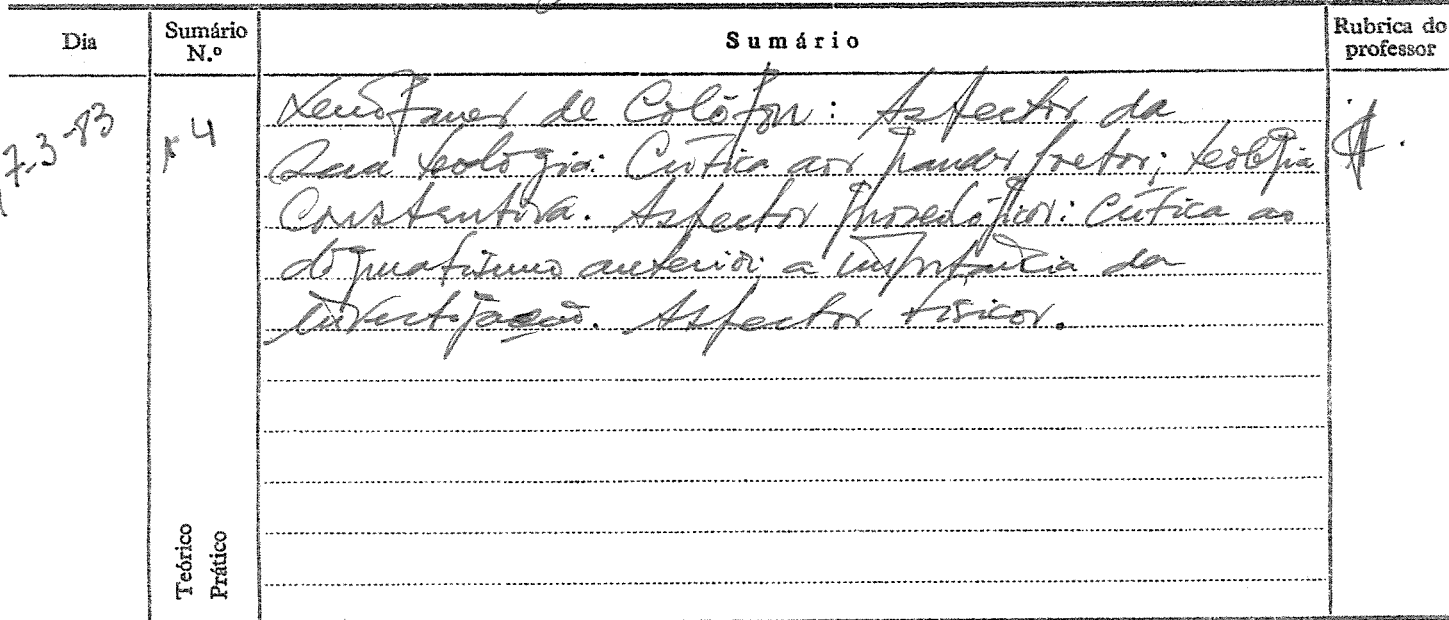 Dia
Sumário
N.º
Sumário
Rubrica do
professor
7-3-83
nº 4
Xenófanes de Colófon: Aspectos da
sua teologia: Crítica aos grandes poetas; teologia
Construtiva. Aspectos gnoseológicos: Crítica ao
dogmatismo anterior; a importância da
investigação. Aspectos físicos.
Teórico
Prático